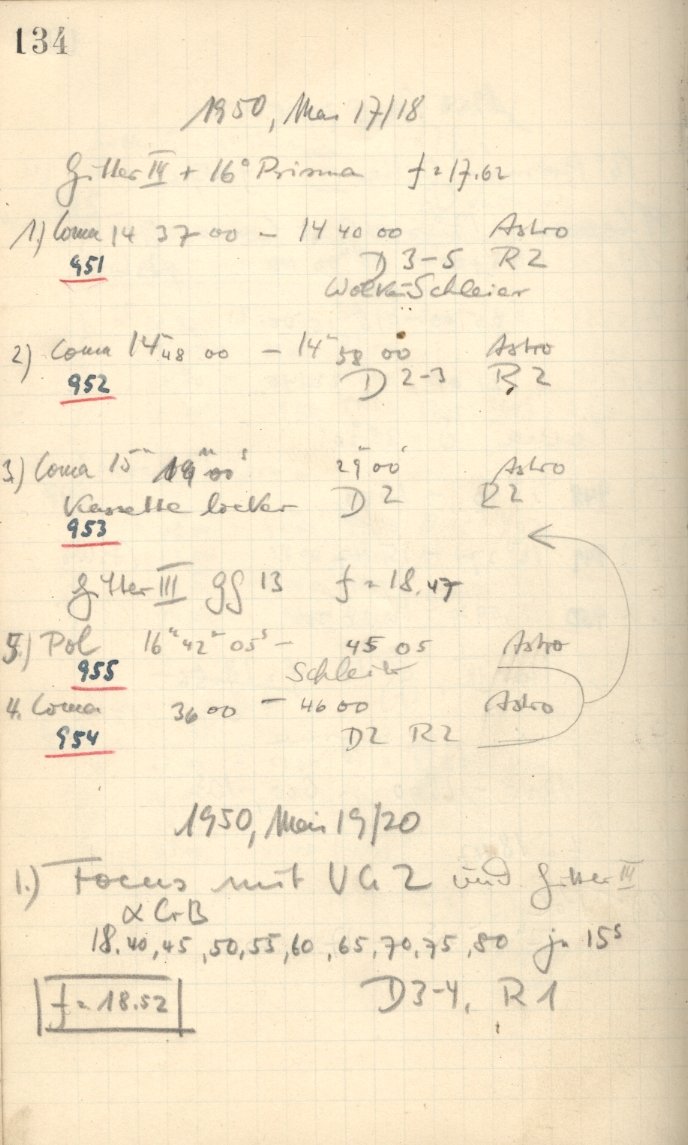 134
1950, Mai 17/18
Gitter IV + 16° Prisma f = 17.62
1.) Coma 14 37 00 – 14 40 00 Astro
951 D 3-5 R 2
Wolken Schleier
2) Coma 14h 48 00 – 14h 58 00 Astro
952 D 2-3 R 2
3.) Coma 15h 19m 00s 29m 00s Astro
Kassette locker D 2 R2
953
Gitter III GG 13 f = 18.47
5.) Pol 16h 42m 05s – 45 05 Astro
955 Schleier
4. Coma 36 00 – 46 00 Astro
954 D2 R2
1950, Mai 19/20
1.) Focus mit VG 2 und Gitter III
α CrB
18.40, 45, 50, 55, 60, 65, 70, 75, 80 je 15s
f = 18.52 D3-4, R 1